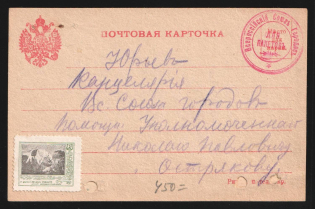 ПОЧТОВАЯ КАРТОЧКА
Всероссійскій Союзъ Городовъ
Юрьев
Канцелярія
Вс. Союза городовъ
Помощн. Уполномоченнаго
Николаю Павловичу
Острякову
450=